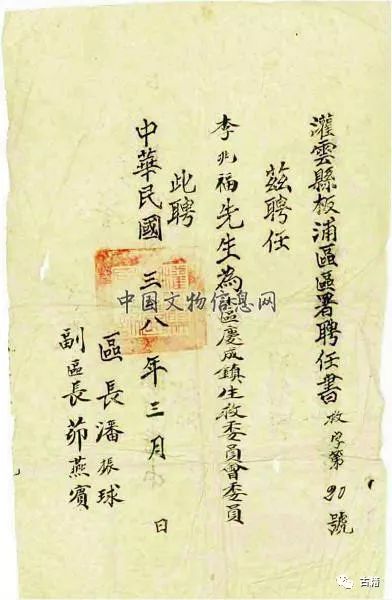 灌雲縣板浦區區署聘任書 救字第90號
茲聘任
李兆福先生為本區慶成鎮生救委員會委員
此聘
中華民國三八年三月 日
區長潘振球
副區長茆燕賓
中国文物信息网